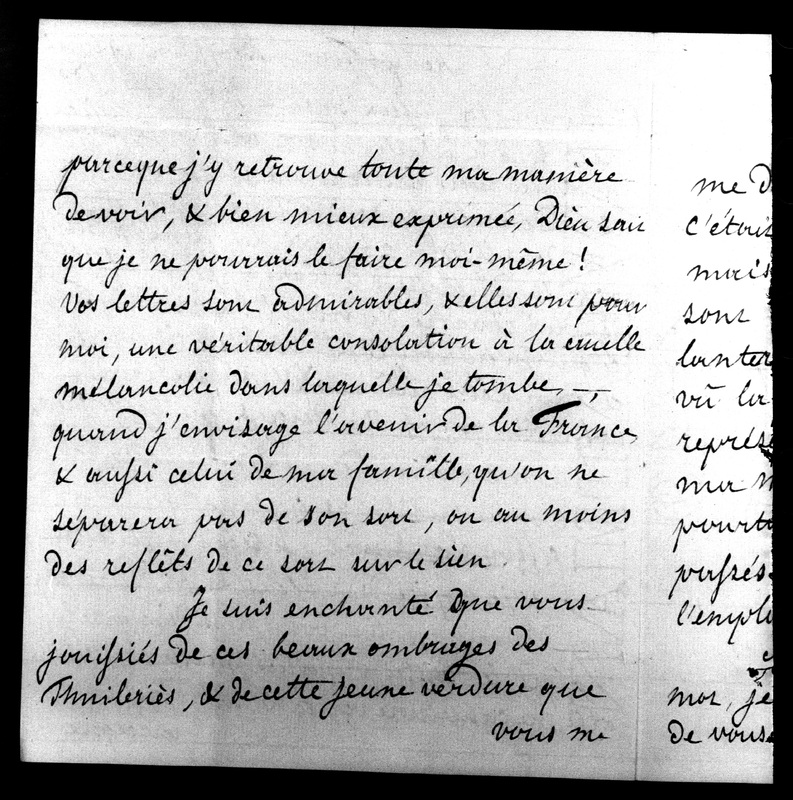 parceque j'y retrouve toute ma manière
de voir, & bien mieux exprimée, Dieu sait
que je ne pourrais le faire moi-même !
Vos lettres sont admirables, & elles sont pour
moi, une véritable consolation à la cruelle
mélancolie dans laquelle je tombe, —,
quand j'envisage l'avenir de la France,
& aussi celui de ma famille, qu'on ne
séparera pas de son sort, ou au moins
des reflêts de ce sort sur le sien
Je suis enchanté que vous
jouissiés de ces beaux ombrages des
Thuileriès, & de cette jeune verdure que
vous me
me d
c'étai
mais
sont
lanter
vû la
représe
ma
pourt
passés
l'emplo
mot, je
de vous